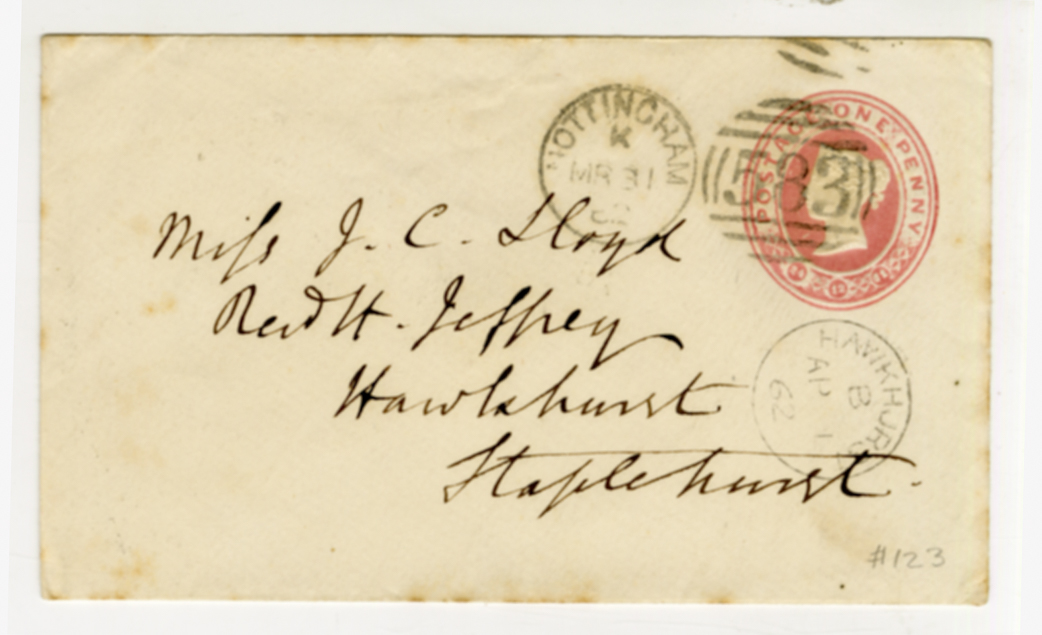 NOTTINGHAM
K
MR 31
62
583
POSTAGE ONE PENNY
Miss J. C. Lloyd
Revd H. Jeffrey
Hawkhurst
Staplehurst.
HAWKHURST
B
AP 1
62
#123